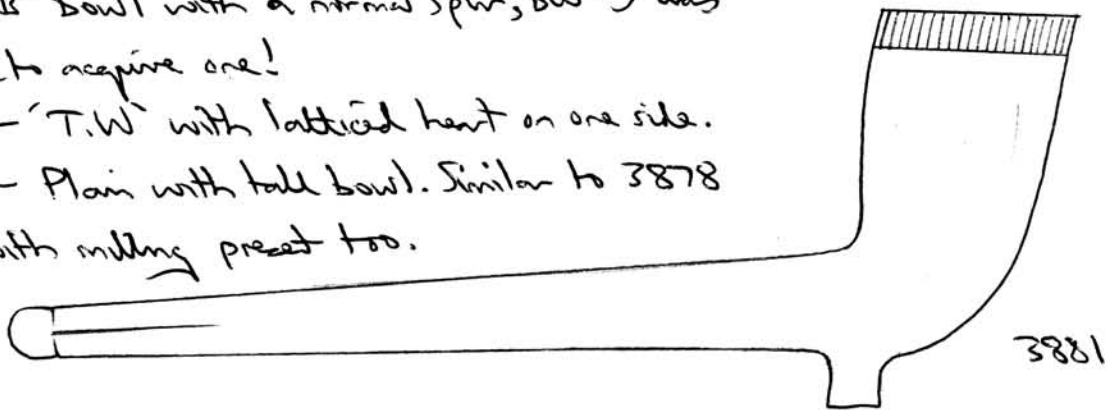 Bowl with a normal spur, but I was
to acquire one!
- 'T.W' with latticed heart on one side.
- Plain with tall bowl. Similar to 3878
with milling present too.
3881